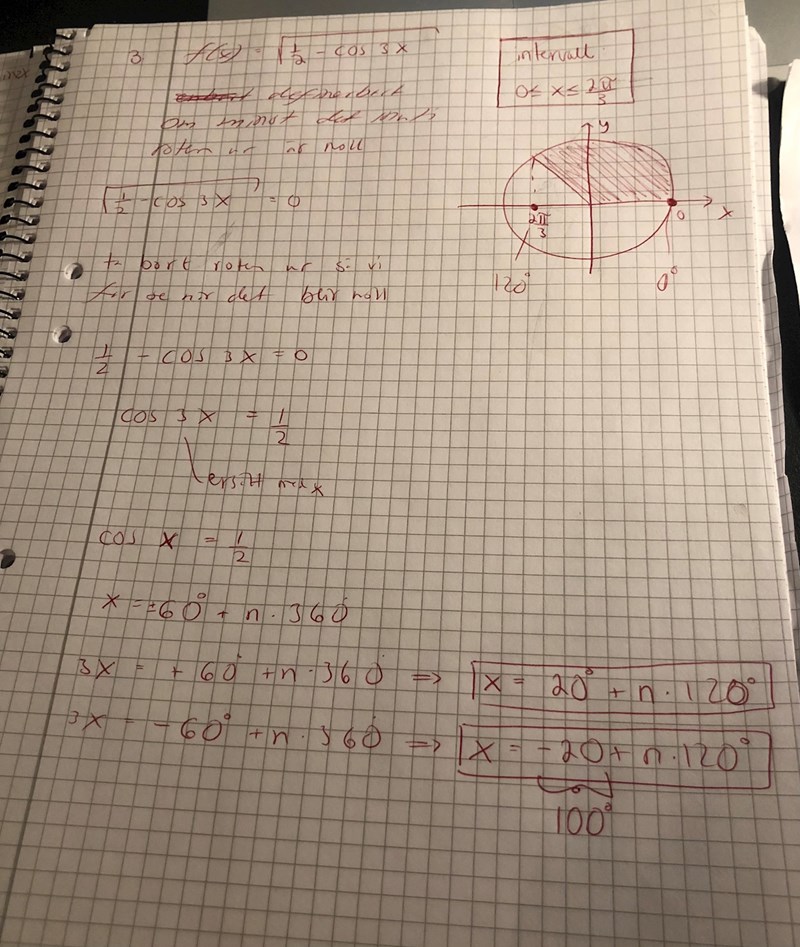 3 f(x) = √(1/2 - cos 3x)
intervall
0 ≤ x ≤ 2π/3
definerbart
om det
roten ur är noll
√(1/2 - cos 3x) = 0
y
x
0
2π/3
120°
0°
ta bort roten ur så vi
får se när det blir noll
1/2 - cos 3x = 0
cos 3x = 1/2
ersätt med x
cos x = 1/2
x = ±60° + n · 360°
3x = + 60° + n · 360° => x = 20° + n · 120°
3x = - 60° + n · 360° => x = -20 + n · 120°
100°